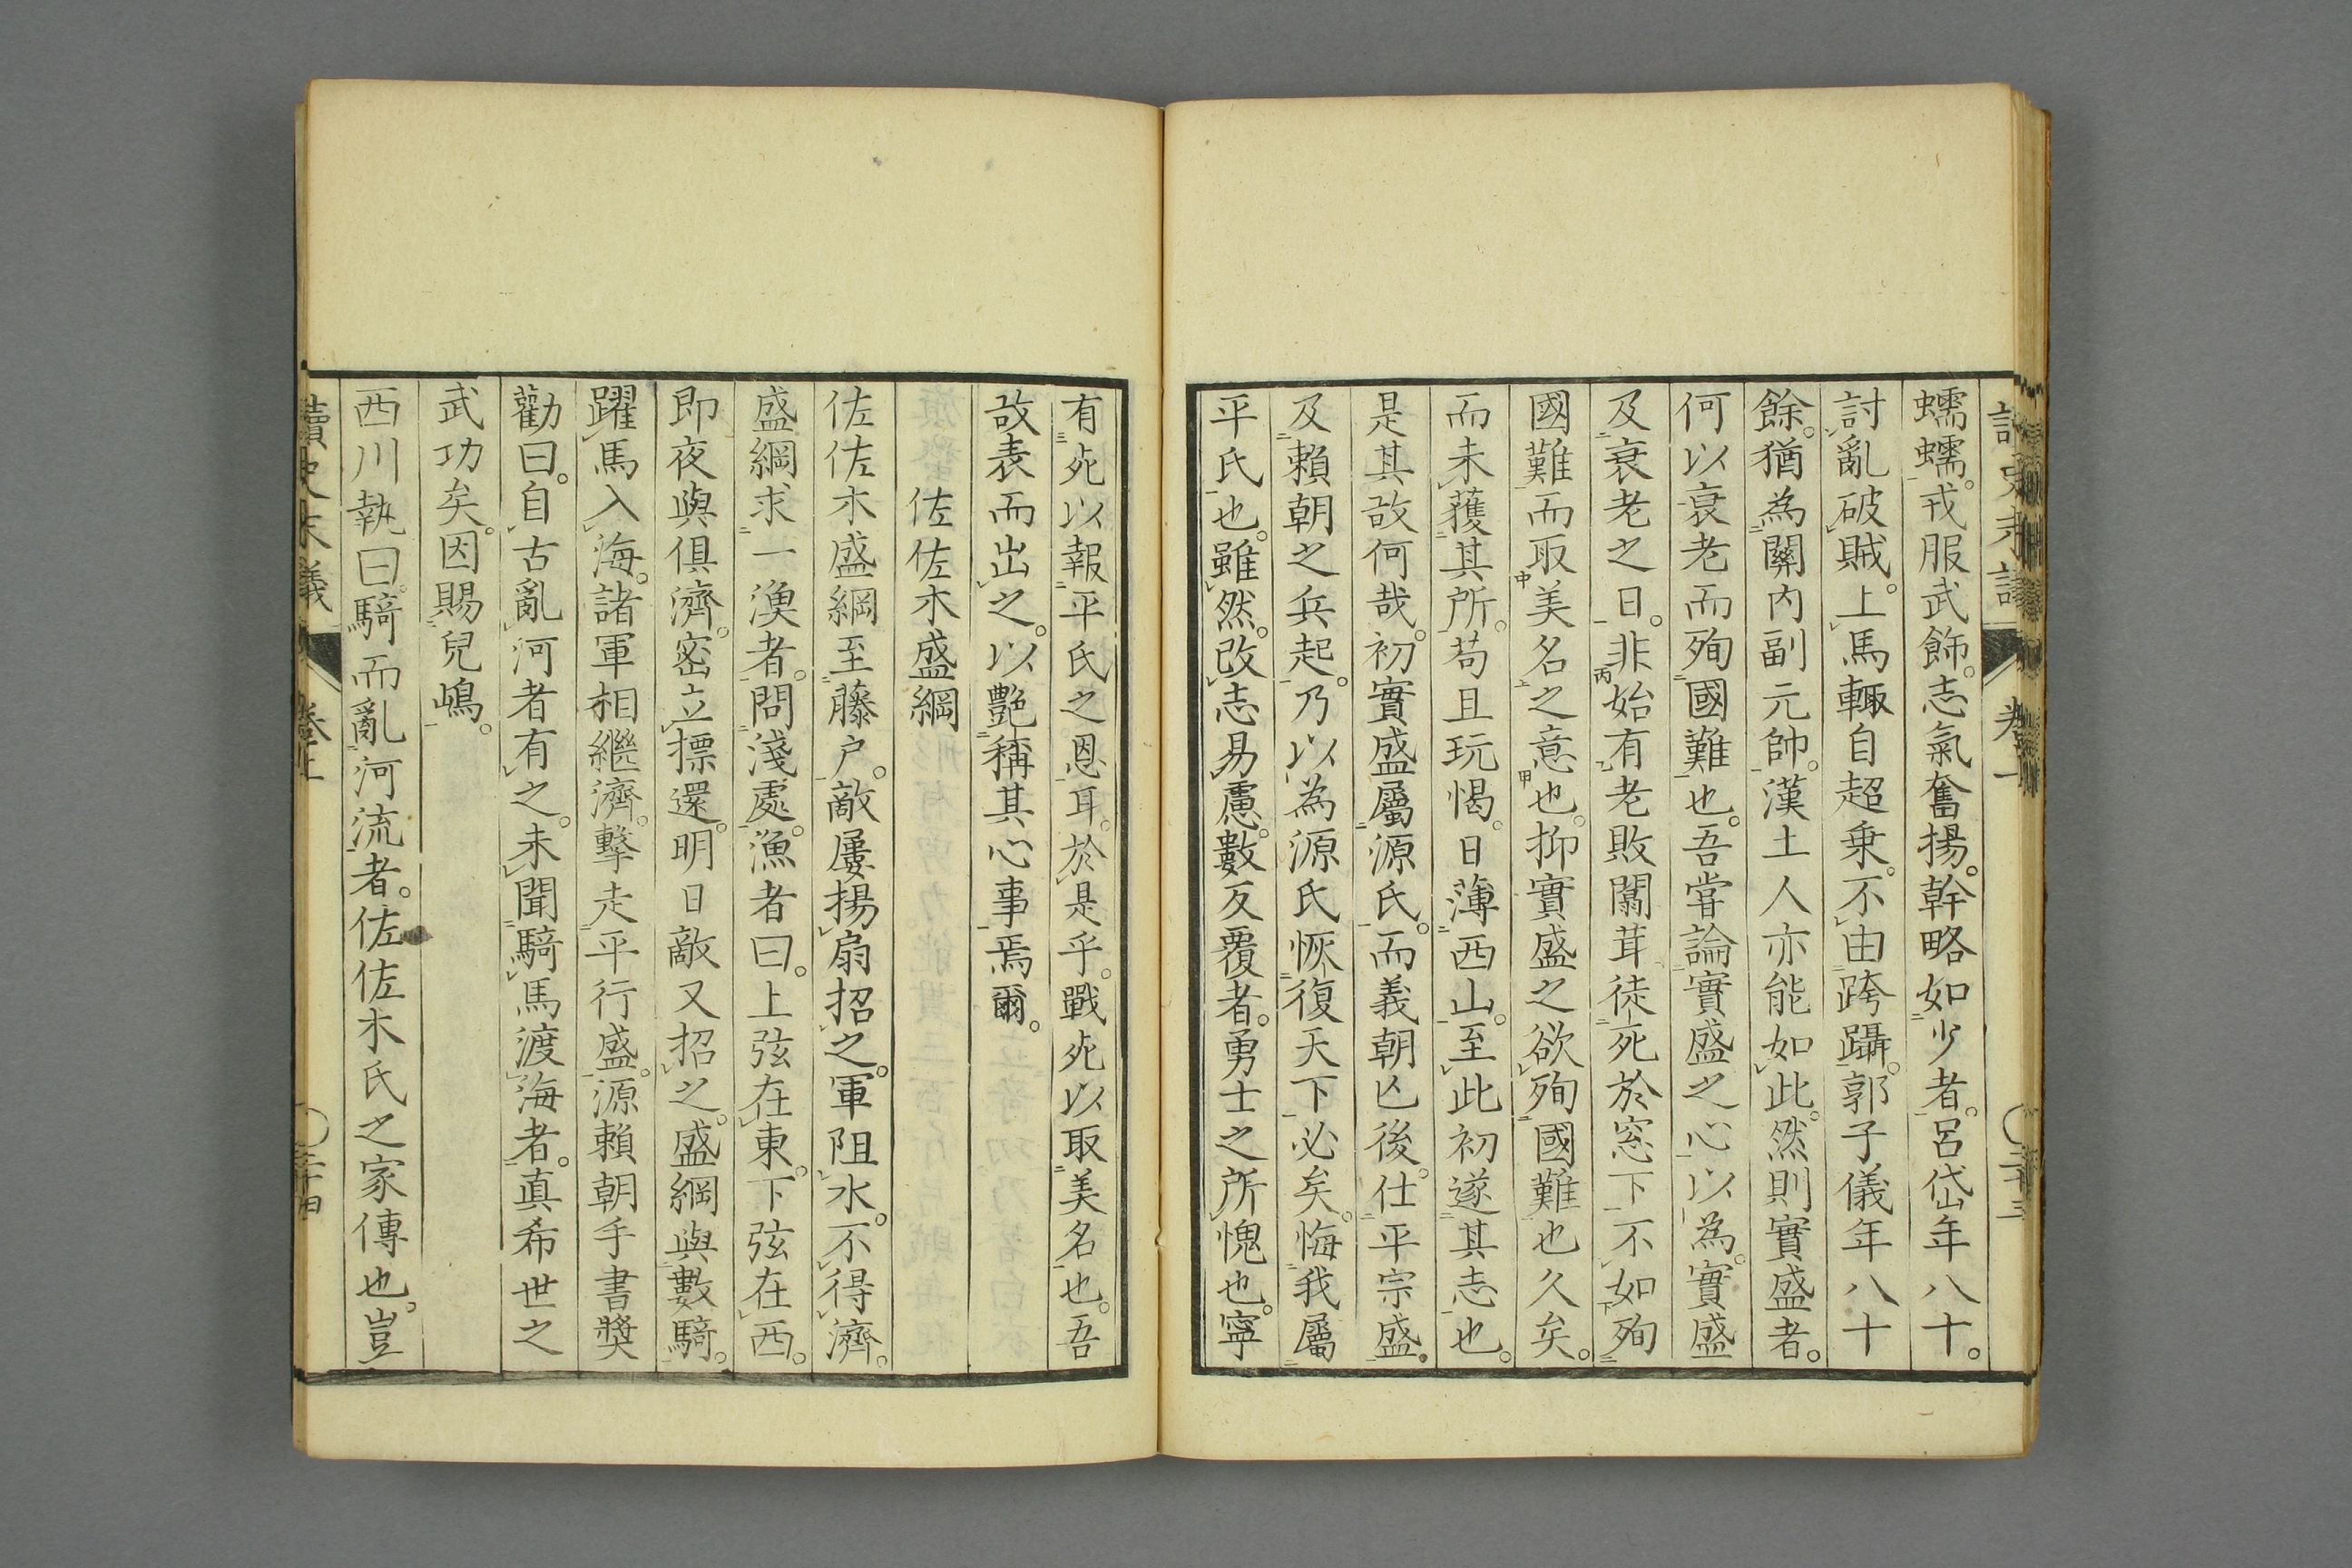 蠕蠕。戎服武飾。志氣奮揚。幹略如少者。呂岱年八十。
討亂破賊。上馬輙自超乗。不由跨躡。郭子儀年八十
餘。猶為關内副元帥。漢土人亦能如此。然則實盛者。
何以衰老而殉國難也。吾嘗論實盛之心以為。實盛
及衰老之日。非始有老敗闒茸徒死於窓下不如殉
國難而取美名之意也。抑實盛之欲殉國難也久矣。
而未獲其所。苟且玩愒。日薄西山。至此初遂其志也。
是其故何哉。初實盛屬源氏。而義朝亾後。仕平宗盛。
及賴朝之兵起。乃以為源氏恢復天下必矣。悔我屬
平氏也。雖然。改志易慮。數反覆者。勇士之所愧也。寧
有死以報平氏之恩耳。於是乎。戰死以取美名也。吾
故表而出之。以艷稱其心事焉爾。
佐佐木盛綱
佐佐木盛綱至藤戸。敵屢揚扇招之。軍阻水。不得濟。
盛綱求一漁者。問淺處。漁者曰。上弦在東。下弦在西。
即夜與俱濟。密立摽還。明日敵又招之。盛綱與數騎。
躍馬入海。諸軍相繼濟。擊走平行盛。源賴朝手書獎
勸曰。自古亂河者有之。未聞騎馬渡海者。真希世之
武功矣。因賜兒嶋。
西川執曰。騎而亂河流者。佐佐木氏之家傳也。豈
讀史末議 卷上 ○二十四